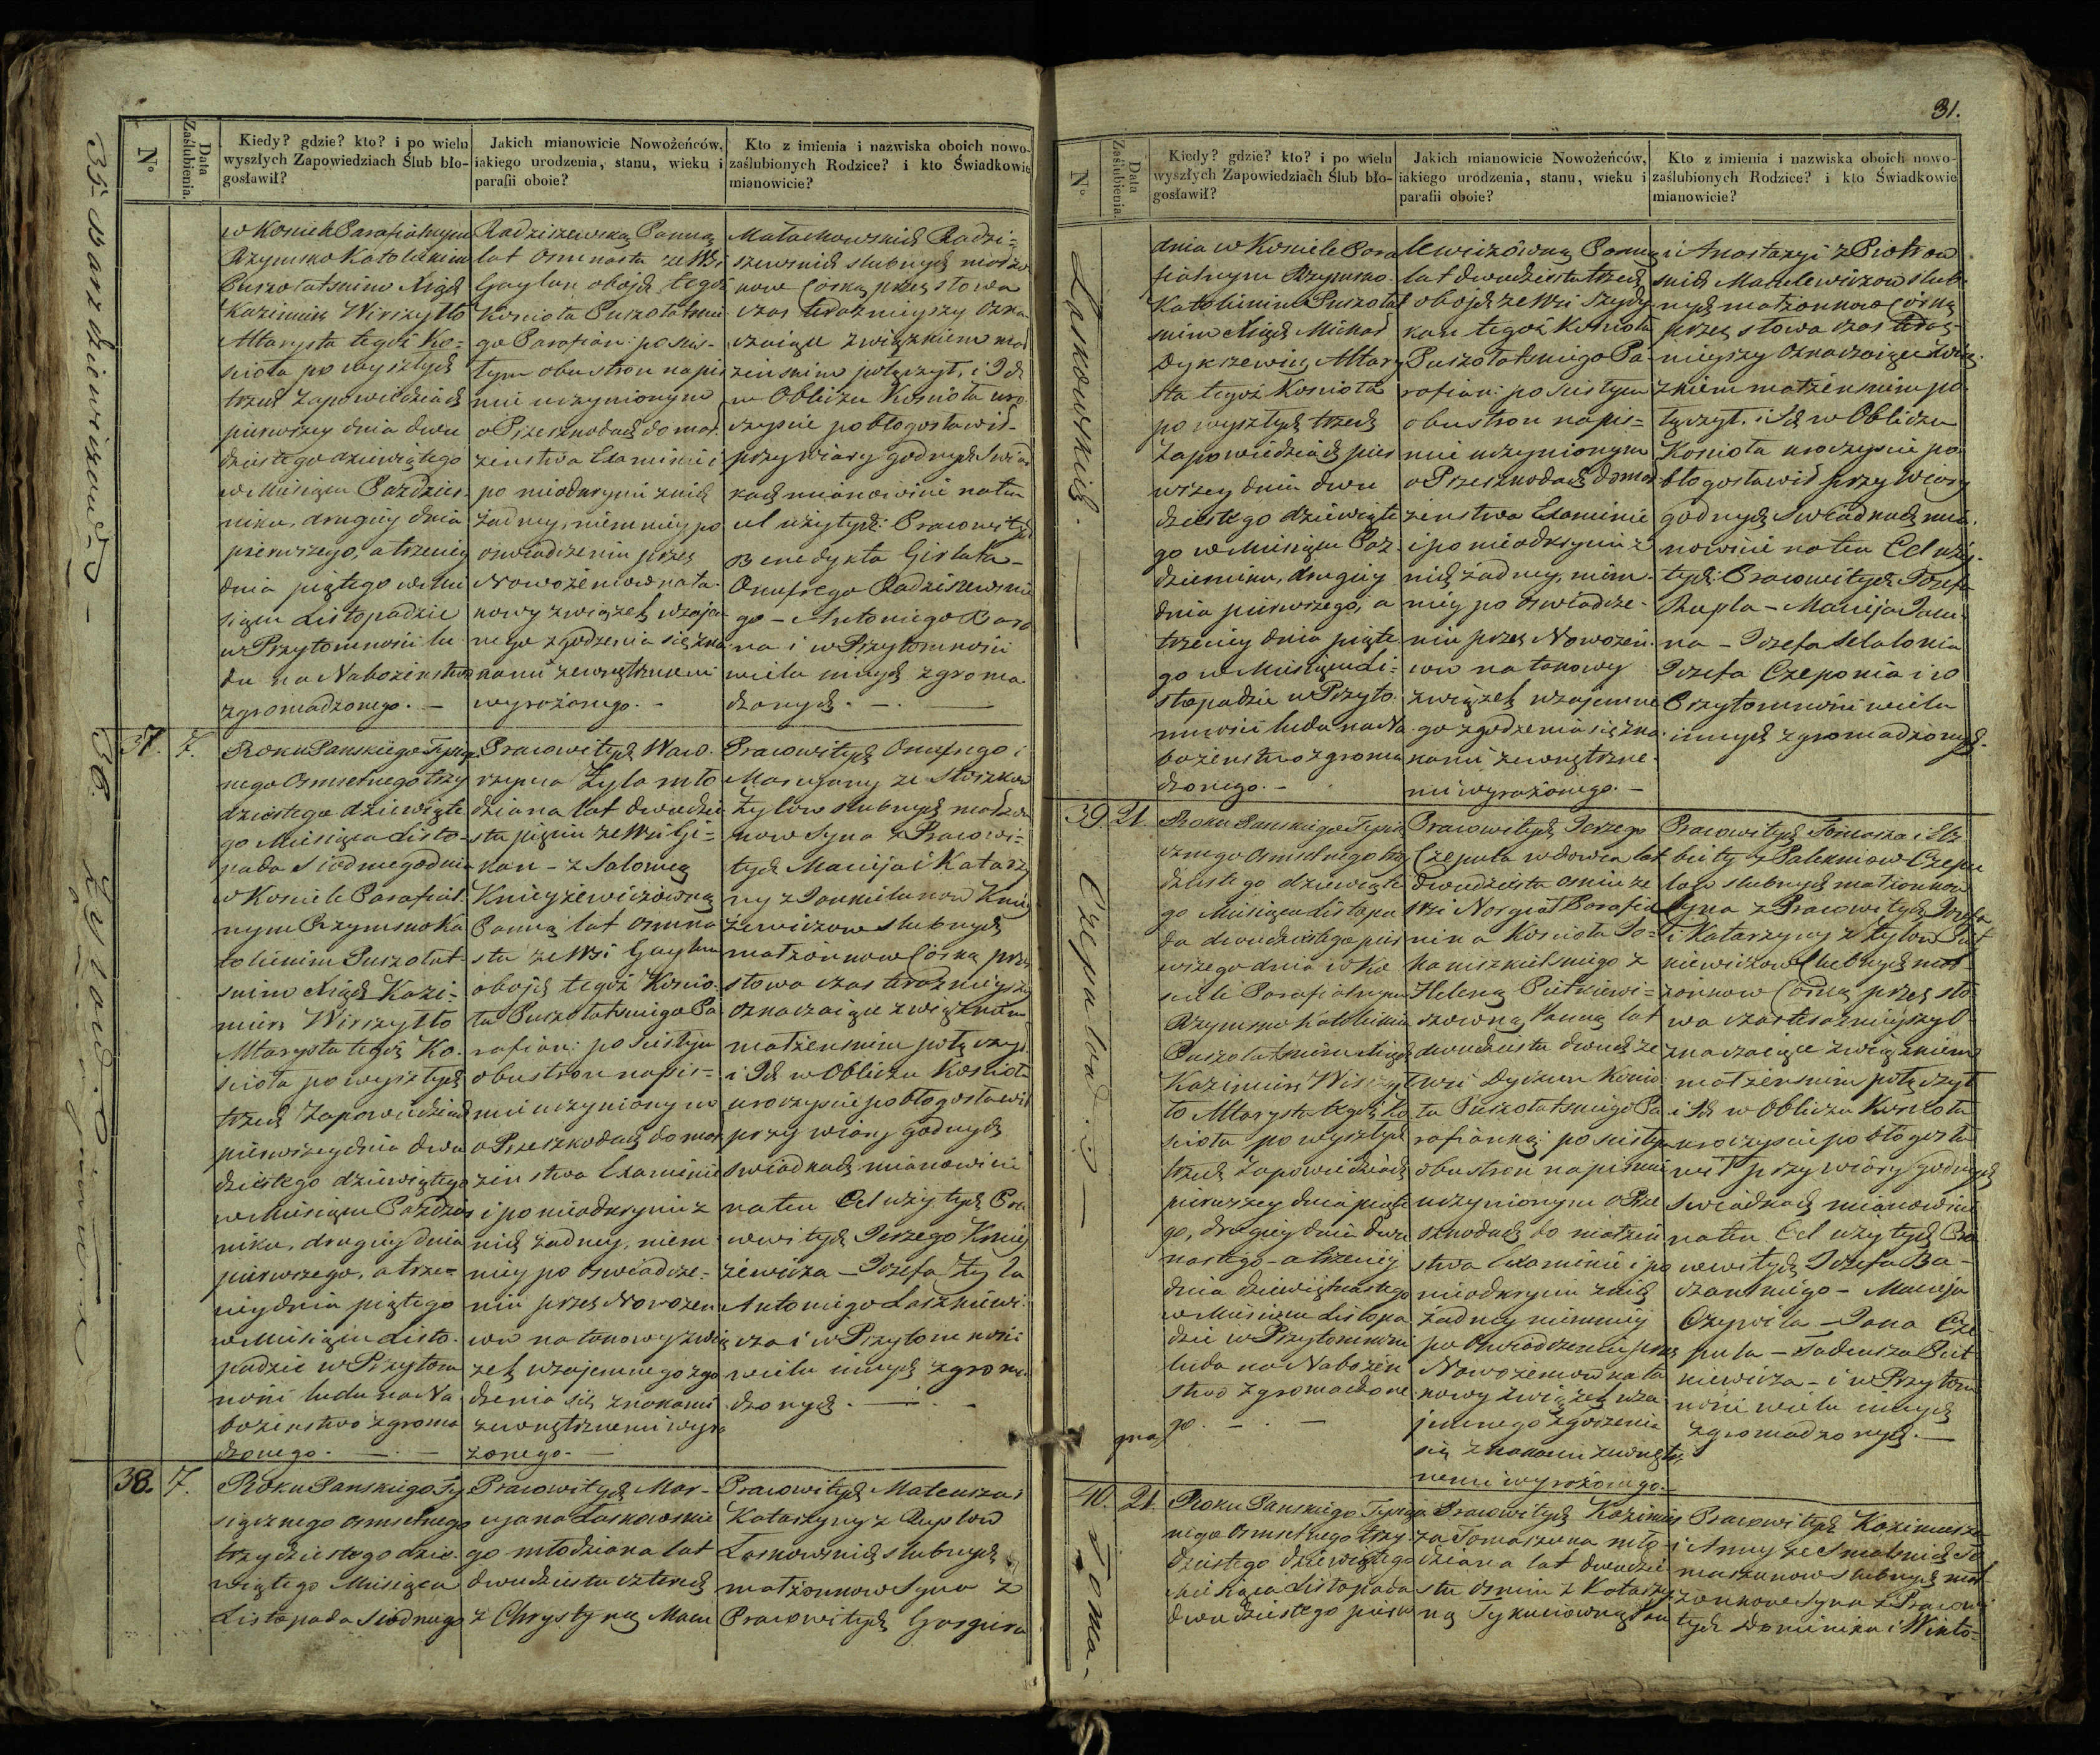 31.
N°
Data Zaślubienia.
Kiedy? gdzie? kto? i po wielu
wyszłych Zapowiedziach Ślub bło-
gosławił?
Jakich mianowicie Nowożeńców,
iakiego urodzenia, stanu, wieku i
parafii oboie?
Kto z imienia i nazwiska oboich nowo-
zaślubionych Rodzice? i kto Świadkowie
mianowicie?
w Kosciele Parafialnym
Rzymsko Katolickim
Puszołatskim Xiądz
Kazimierz Wirszyłło
Altarysta tegoż Ko-
scioła po wyszłych
trzech Zapowiedziach
pierwszey dnia dwu
dziestego dziewiątego
w Miesiącu Paździer-
niku, drugiey dnia
pierwszego, a trzeciey
dnia piątego w Mie
siącu Listopadzie
w Przytomności lu
du na Nabożeństwo
zgromadzonego. —
Radziszewską Panną
lat osmnastu ze Wsi
Gaylun obojch tegoż
Kościoła Puszołatskie
go Parafian: po ścis-
łym obustron napis
mie uczynionym
o Przeszkodach do mał
żeństwa Examinie i
po nieodkryciu z nich
żadney, niemniey po
oświadczeniu przez
Nowożeńcow na ta-
kowy związek wzaje
mnego zgodzenia się zna
kami zewnętrznemi
wyrażonego. —
Małachowskich Radzi=
szewskich slubnych małżon
kow Corką przez słowa
czas teraźnieyszy ozna
czaiące związkiem mał
żeńskim połączył, i Ich
w Obliczu Kościoła uro
czyscie pobłogosławił
przy wiary godnych Swiad
kach mianowicie na ten
cel użytych: Pracowitych
Benedykta Girłata —
Onufrego Radziszewskie
go — Antoniego Bara
na i w Przytomności
wielu innych zgroma
dzonych. —
35 Barzdziewiczow. —
36. Zyłow. z Kniżewiczowną
37.
7.
Roku Panskiego Tysiącz
nego Osmsetnego trzy
dziestego dziewiąte
go Miesiąca Listo-
pada Siodmego dnia
w Kosciele Parafial-
nym Rzymsko Ka
tolickim Puszołat-
skim Xiądz Kazi=
mierz Wirszyłło
Altarysta tegoż Ko-
scioła po wyszłych
trzech Zapowiedziach
pierwszey dnia dwu
dziestego dziewiątego
w Miesiącu Paździer
niku, drugiey dnia
pierwszego, a trze=
ciey dnia piątego
w Miesiącu Listo-
padzie w Przytom
ności ludu na Na
bożenstwo zgroma
dzonego. —
Pracowitych Waw-
rzynca Zyła mło
dziana lat dwudzie
stu pięciu ze Wsi Gi=
kan — z Salomeą
Knieyżewiczowną
Panną lat osmna
stu ze Wsi Gaylun
obojch tegoż Koscio
ła Puszołatskiego Pa
rafian: po scisłym
obustron napis=
mie uczynionym
o Przeszkodach do mał
żenstwa Examinie
i po nieodkryciu z
nich żadney, niem
niey po oswiadcze-
niu przez Nowożen
cow na takowy zwią
zek wzajemnego zgo
dzenia się znakami
zewnętrznemi wyra
żonego. —
Pracowitych Onufrego i
Maryanny ze Stoszkow
Zyłow slubnych małżon
kow Syna z Pracowi=
tych Macieja i Katarzy
ny z Jankielunow Kniey
żewiczow slubnych
małżonkow Corką przez
słowa czas teraźnieyszy
oznaczaiące związkiem
małżenskim połączył
i Ich w Obliczu Kosciola
uroczyscie pobłogosławił
przy wiary godnych
Swiadkach mianowicie
na ten Cel użytych Pra
cowitych Jerzego Kniey
żewicza — Jozefa Zyła
Antoniego Laszkiewi
cza i w Przytomności
wielu innych zgroma
dzonych. —
38.
7.
Roku Panskiego Ty
siącznego osmsetnego
trzydziestego dzie-
wiątego Miesiąca
Listopada Siodmego
Pracowitych Mar-
cyana Laskowskie
go młodziana lat
dwudziestu czterech
z Chrystyną Mace
Pracowitych Mateusza i
Katarzyny z Ruplow
Laskowskich slubnych
małżonkow Syna z
Pracowitych Gaspra
N°
Data Zaślubienia.
Kiedy? gdzie? kto? i po wielu
wyszłych Zapowiedziach Ślub bło-
gosławił?
Jakich mianowicie Nowożeńców,
iakiego urodzenia, stanu, wieku i
parafii oboie?
Kto z imienia i nazwiska oboich nowo-
zaślubionych Rodzice? i kto Świadkowie
mianowicie?
Laskowskich. —
dnia w Kosciele Para
fialnym Rzymsko-
Katolickim Puszołat
skim Xiądz Michał
Dykszewicz Altary
sta tegoż Koscioła
po wyszłych trzech
Zapowiedziach pier
wszey dnia dwu
dziestego dziewiąte
go w Miesiącu Paź-
dzierniku, drugiey
dnia pierwszego, a
trzeciey dnia piąte
go w Miesiącu Li=
stopadzie w Przyto-
mności ludu na Na
bożenstwo zgroma
dzonego. —
lewiczowną Panną
lat dwudziestu trzech
obojch ze Wsi Szydy
kan tegoż Koscioła
Puszołatskiego Pa-
rafian: po scisłym
obustron napis=
mie uczynionym
o Przeszkodach do mał
żenstwa Examinie
i po nieodkryciu z
nich żadney, niem-
niey po oswiadcze-
niu przez Nowożen-
cow na takowy
związek wzajemne
go zgodzenia się zna
kami zewnętrzne-
mi wyrażonego. —
i Anastazyi z Piotrow
skich Macelewiczow slub-
nych małżonkow Corką
przez słowa czas teraz-
nieyszy oznaczaiące związ
kiem małżenskim po
łączył, i Ich w Obliczu
Koscioła uroczyscie po
błogosławił przy Wiary
godnych Swiadkach mia-
nowicie na ten Cel uży-
tych: Pracowitych Jozefa
Rupla — Macieja Jacu-
na — Jozefa Matonia
Jozefa Czeponia i w
Przytomności wielu
innych zgromadzonych.
Czepułow. —
39.
21.
Roku Panskiego Tysią
cznego Osmsetnego trzy
dziestego dziewiąte
go Miesiąca Listopa
da dwudziestego pier
wszego dnia w Ko
sciele Parafialnym
Rzymsko Katolickim
Puszołatskim Xiądz
Kazimierz Wirszył
ło Altarysta tegoż Ko
scioła po wyszłych
trzech Zapowiedziach
pierwszey dnia piąte
go, drugiey dnia dwu
nastego — a trzeciey
dnia dziewiętnastego
w Miesiącu Listopa
dzie w Przytomności
ludu na Nabożen
stwo zgromadzone
go. —
Pracowitych Jerzego
Czepuła wdowca lat
dwudziestu osmiu ze
Wsi Norgiał Parafia
nina Koscioła Jo=
haniszkielskiego z
Heleną Pietkiewi=
czowną Panną lat
dwudziestu dwuch ze
wsi Dyczun Koscio
ła Puszołatskiego Pa
rafianką: po scisłym
obustron napismie
uczynionym o Prze
szkodach do małżen
stwa Examinie i po
nieodkryciu z nich
żadney niemniey
po Oswiadczeniu przez
Nowożencow na ta
kowy związek wza
jemnego zgodzenia
się znakami zewnętrz
nemi wyrażonego. —
Pracowitych Tomasza i Elż
biety z Palekniow Czepu
łow slubnych małżonkow
Syna z Pracowitych Jozefa
i Katarzyny z Zyłow Piet
kiewiczow slubnych mał-
żonkow Corką przez sło
wa czas teraźnieyszy O-
znaczaiące związkiem
małżenskim połączył
i Ich w Obliczu Koscioła
uroczyscie pobłogosła
wił przy wiary godnych
Swiadkach mianowicie
na ten Cel użytych Pra
cowitych Jozefa Ba-
czanskiego — Macieja
Czywila — Jana Cze
puła — Tadeusza Piet-
kiewicza — i w Przytom
ności wielu innych
zgromadzonych. —
Toma-
40.
21.
Roku Panskiego Tysiącz
nego Osmsetnego trzy-
dziestego dziewiątego
Miesiąca Listopada
dwudziestego pierw
Pracowitych Kazimie
rza Tomaszuna mło-
dziana lat dwudzie
stu osmiu z Katarzy
ną Tykuciowną Pan
Pracowitych Kazimierza
i Anny ze Smalskich To
maszunow slubnych mał
żonkow Syna z Pracowi
tych Dominika i Wikto=